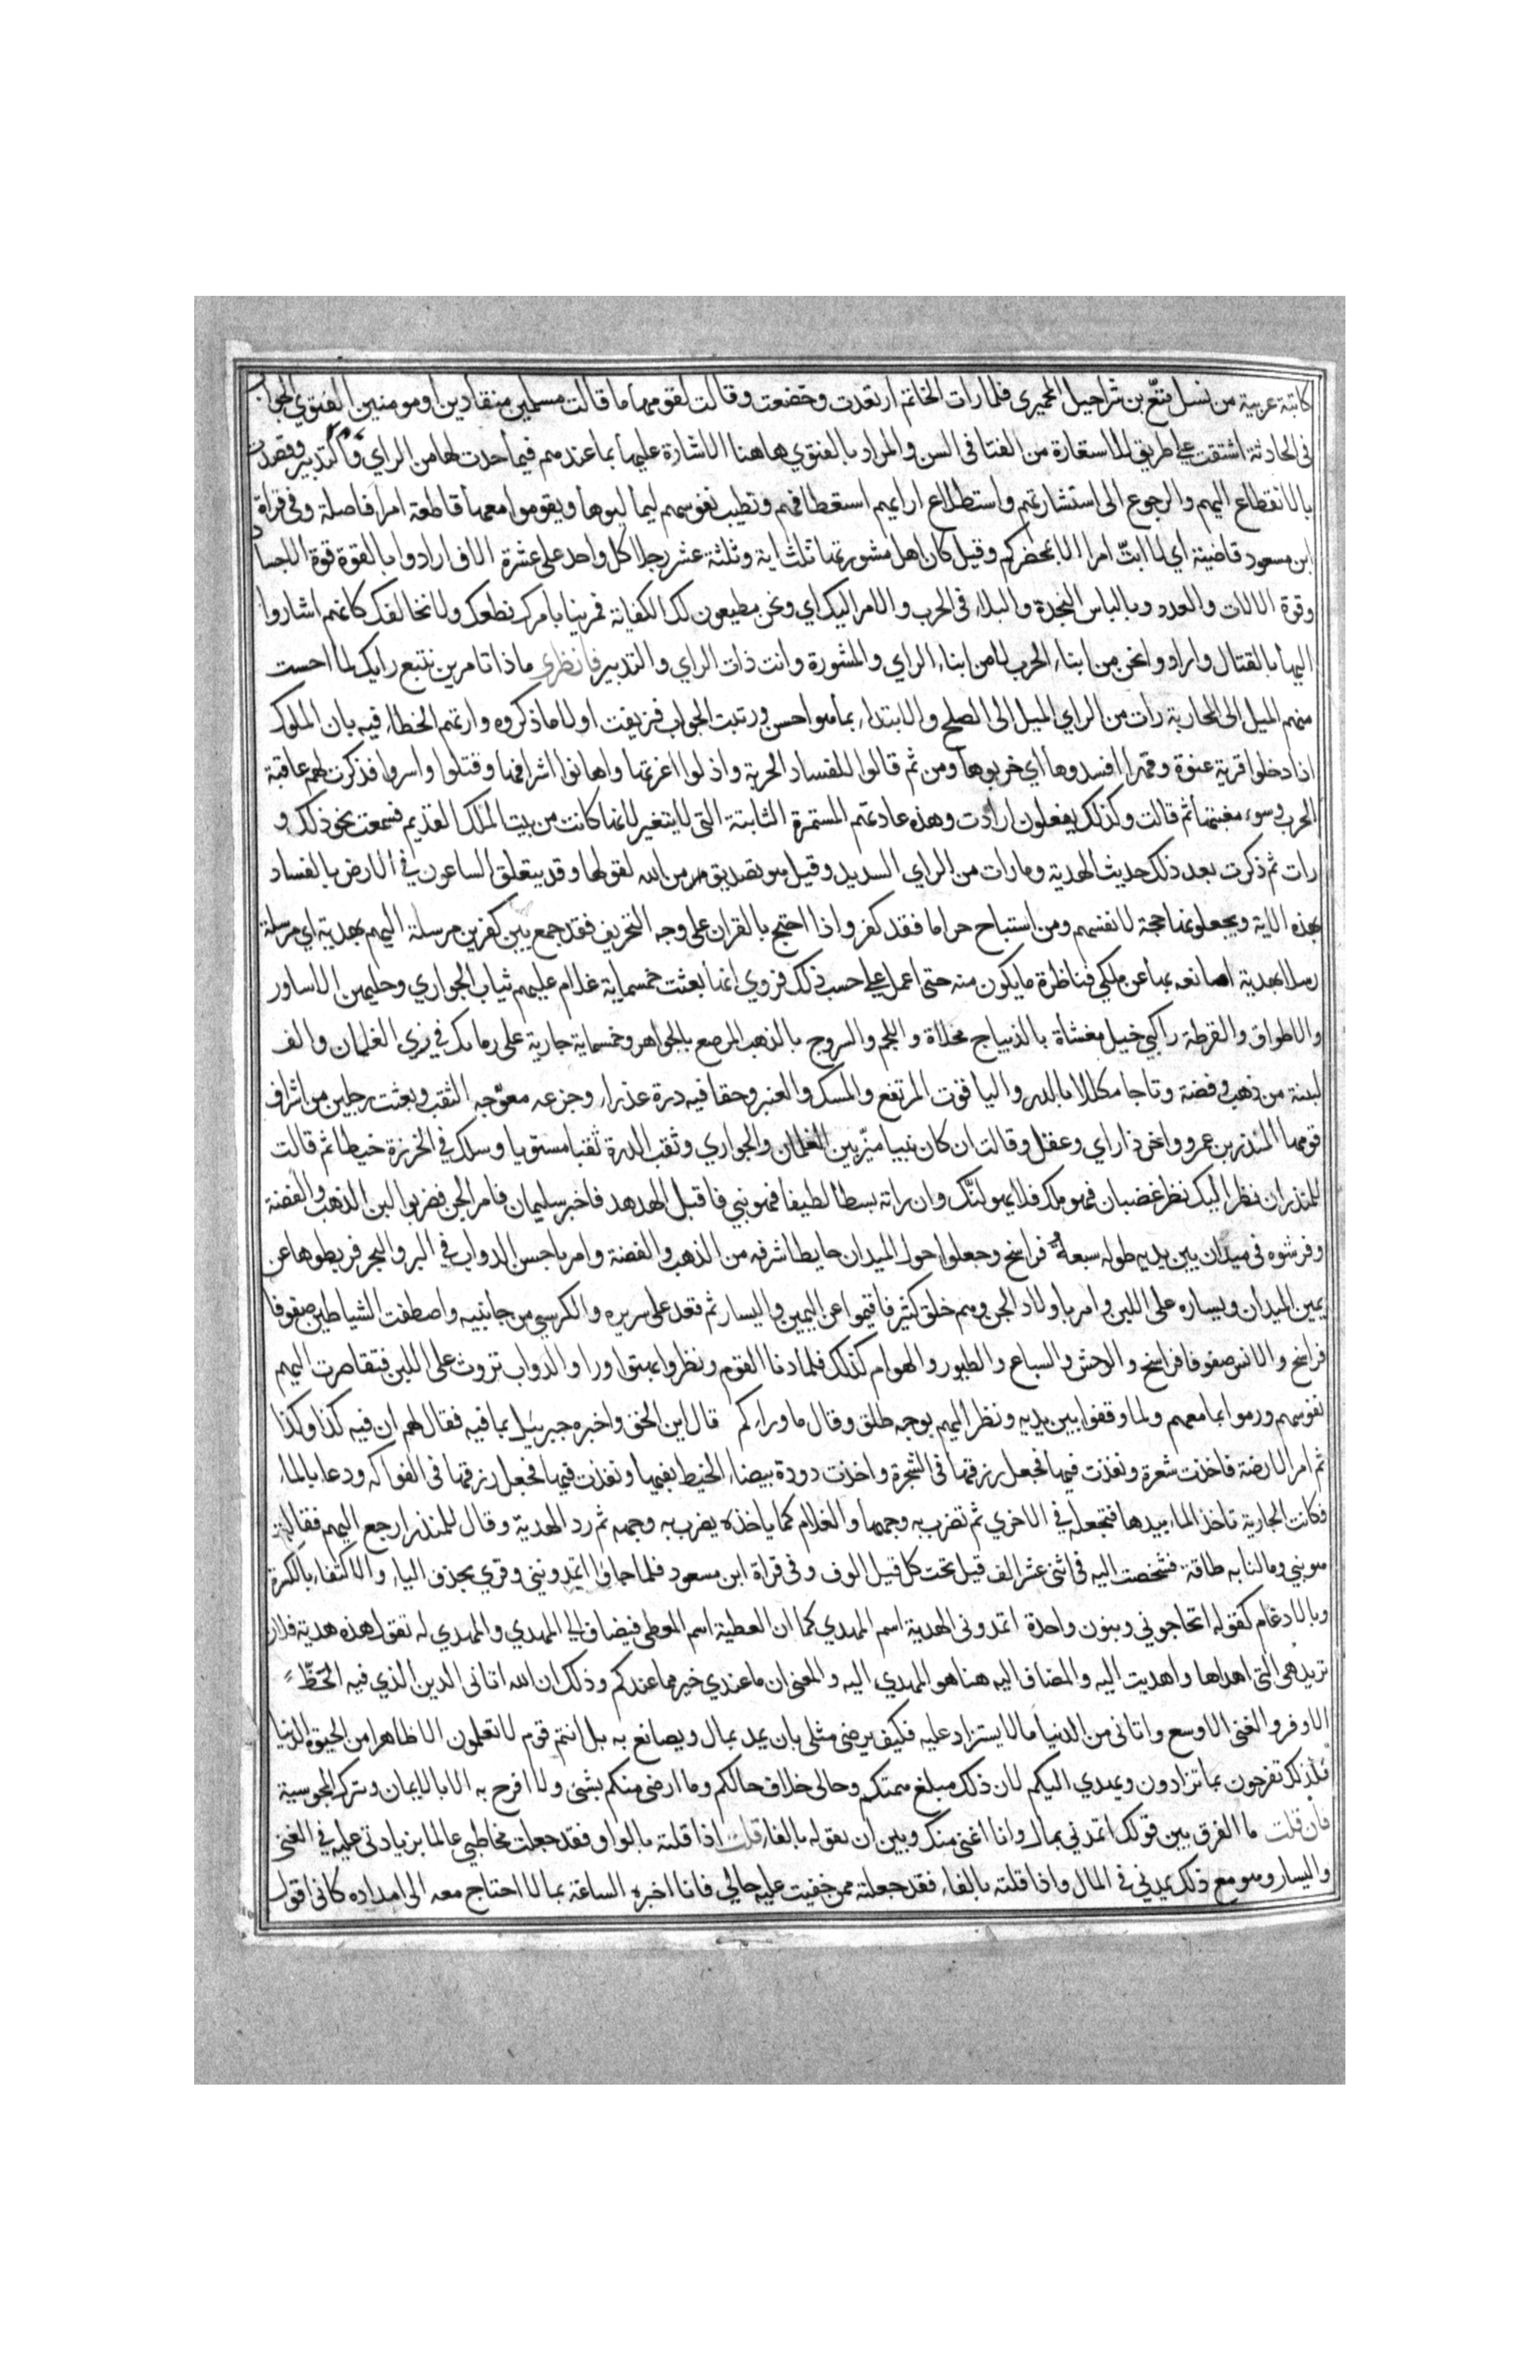 كاتبة عربية من نسل تبّع بن شراحيل الحميرى فلما رات الخاتم ارتعدت وخضعت وقالت لقومها ما قالت مسلمين منقادين او مومنين الفتوي الجواب
فى الحادثة اشتقت على طريق الاستعارة من الفتا فى السن والمراد بالفتوي هاهنا الاشارة عليها بما عندهم فيما حدث لها من الراي والتدبير وقصدت
بالانقطاع اليهم والرجوع الى استشارتهم واستطلاع ارايهم استعطافهم وتطيب نفوسهم ليمالیوها ويقوموا معها قاطعة امرا فاصلة وفى قراة
ابن مسعود قاضية اي لا ابتّ امرا الا بمحضركم وقيل كان اهل مشورتها ثلثماية وثلثة عشر رجلا كل واحد على عشرة الاف ارادوا بالقوة قوة الاجسا
وقوة الالات والعدد وبالباس النجدة والبلاء فى الحرب والامر اليك اي ونحن مطيعون لك الكفاية فمرينا بامرك نطعك ولا نخالفك كانهم اشاروا
اليها بالقتال وارادوا نحن من ابناء الحرب لا من ابناء الراي والمشورة وانت ذات الراي والتدبير فانظري ماذا تامرين نتبع رايك لما احست
منهم الميل الى المحاربة رات من الراي الميل الى الصلح والابتداء بما هو احسن ورتبت الجواب فزيفت اولا ما ذكروه وارتهم الخطاء فيه بان الملوك
اذا دخلوا قرية عنوة وقهرا افسدوها اي خربوها ومن ثم قالوا للفساد الخربة واذلوا اعزتها واهانوا اشرافها وقتلوا واسروا فذكرت لهم عاقبة
الحرب وسوء مغبتها ثم قالت وكذلك يفعلون ارادت وهذه عادتهم المستمرة الثابتة التى لا يتغير لانها كانت من بيت الملك القديم فسمعت نحو ذلك و
رات ثم ذكرت بعد ذلك حديث الهدية وما رات من الراي السديد وقيل هو تصديق من الله لقولها وقد يتعلق الساعون في الارض بالفساد
بهذه الاية ويجعلونها حجة لانفسهم ومن استباح حراما فقد كفر واذا احتج بالقران على وجه التحريف فقد جمع بين كفرين مرسلة اليهم بهدية اي مرسلة
رسلا بهدية اصانعه بها عن ملكي فناظرة ما يكون منه حتى اعمل على حسب ذلك فروي انها بعثت خمسماية غلام عليهم ثياب الجواري وحليهن الاساور
والاطواق والقرطة راكبي خيل مغشاة بالديباج محلاة واللجم والسروج بالذهب المرصع بالجواهر وخمسماية جارية على رماك في زي الغلمان والف
لبنة من ذهب وفضة وتاجا مكللا بالدر والياقوت المرتفع والمسك والعنبر وحقا فيه درة عذراء وجزعه معوّجه الثقب وبعثت رجلين من اشراف
قومها المنذر بن عمرو واخر ذا راي وعقل وقالت ان كان نبيا ميّز بين الغلمان والجواري وثقب الدرة ثقبا مستويا وسلك في الخرزة خيطا ثم قالت
للمنذر ان نظر اليك نظر غضبان فهو ملك فلا يهولنّك وان راته بسطا لطيفا فهو نبي فاقبل الهدهد فاخبر سليمان فامر الجن فضربوا لبن الذهب والفضة
وفرشوه فى ميدان بين يديه طوله سبعة فراسخ وجعلوا حول الميدان حايطا شرفه من الذهب والفضة وامر باحسن الدواب في البر والبحر فربطوها عن
يمين الميدان ويساره على اللبن وامر باولاد الجن وهم خلق كثير فاقيموا عن اليمين واليسار ثم قعد على سريره والكرسي من جانبيه واصطفت الشياطين صفوفا
فراسخ والانس صفوفا فراسخ والوحش والسباع والطيور والهوام كذلك فلما دنا القوم ونظروا بهتوا وراوا الدواب تروث على اللبن فتقاصرت اليهم
نفوسهم ورموا بما معهم ولما وقفوا بين يديه ونظر اليهم بوجه طلق وقال ما وراءكم قال اين الحق واخبره جبرييل بما فيه فقال لهم ان فيه كذا وكذا
ثم امر الارضة فاخذت شعرة ونفذت فيها فجعل رزقها فى الشجرة واخذت دودة بيضاء الخيط بفيها ونفذت فيها فجعل رزقها فى الفواكه ودعا بالماء
فكانت الجارية تاخذ الماء بيدها فتجعله في الاخري ثم تضرب به وجهها والغلام كما ياخذه يضرب به وجهه ثم رد الهدية وقال للمنذر ارجع اليهم فقالت
هو نبي وما لنا به طاقة فشخصت اليه فى اثنى عشر الف قيل تحت كل قيل الوف وفى قراة ابن مسعود فلما جاؤا اتمدونني وقري بحذف الياء والاكتفاء بالكسرة
وبالادغام كقوله اتحاجوني وبنون واحدة اتمدونى الهدية اسم المهدي كما ان العطية اسم المعطى فيضاف الي المهدي والمهدي له تقول هذه هدية فلان
تريد هى التى اهداها واهديت اليه والمضاف اليه هنا هو المهدي اليه والمعنى ان ما عندي خير مما عندكم وذلك ان الله اتانى الدين الذي فيه الحظّ
الاوفر والغنى الاوسع واتانى من الدنيا ما لا يستزاد عليه فكيف يرضى مثلى بان يمد بمال ويصانع به بل انتم قوم لا تعلمون الا ظاهرا من الحيوة الدنيا
فلذلك تفرحون بما تزادون ويهدي اليكم لان ذلك مبلغ همتكم وحالى خلاف حالكم وما ارضى منكم بشئ ولا افرح به الا بالايمان وترك المجوسية
فان قلت ما الفرق بين قولك اتمدني بمال وانا اغنى منك وبين ان يقوله بالفاء قلت اذا قلته بالواو فقد جعلت مخاطبي عالما بزيادتى عليه في الغنى
واليسار وهو مع ذلك يمدني في المال واذا قلته بالفاء فقد جعلته ممن خفيت عليه حالي فانا اخبره الساعة بما لا احتاج معه الى امداده كانى اقول